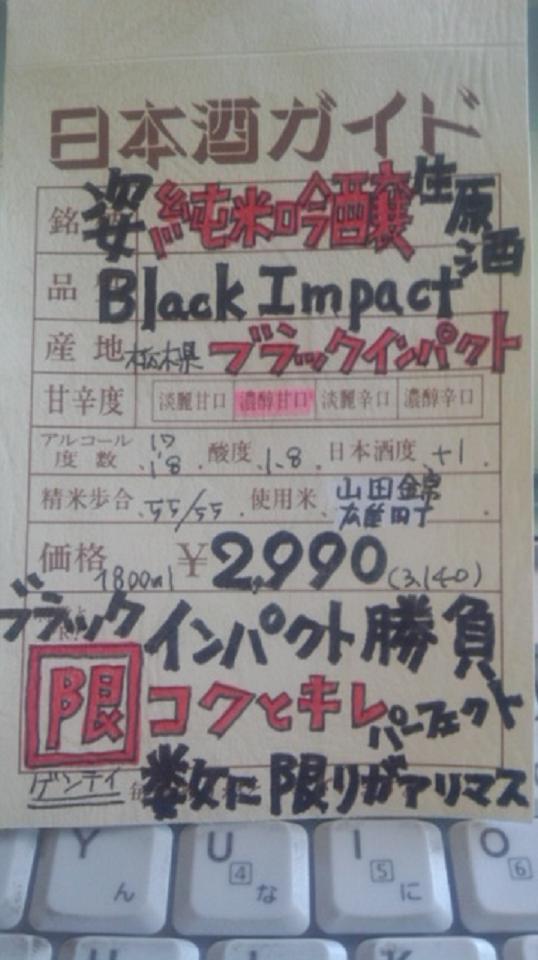 日本酒ガイド
銘 姿 純米吟醸 生原酒
品 Black Impact
産地 栃木県 ブラックインパクト
甘辛度 淡麗甘口 濃醇甘口 淡麗辛口 濃醇辛口
アルコール度数 17 18 酸度 1.8 日本酒度 +1
精米歩合 55/55 使用米 山田錦
価格 1800ml ¥2,990 (3,140)
ブラックインパクト勝負
限 コクとキレ パーフェクト
ゲンテイ 数女に限りがアリマス
Y ん
U 4 な
I 5 に
O 6